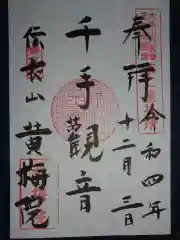 奉拝
令和四年
十二月三日
千手観音
伝衣山
黄梅院